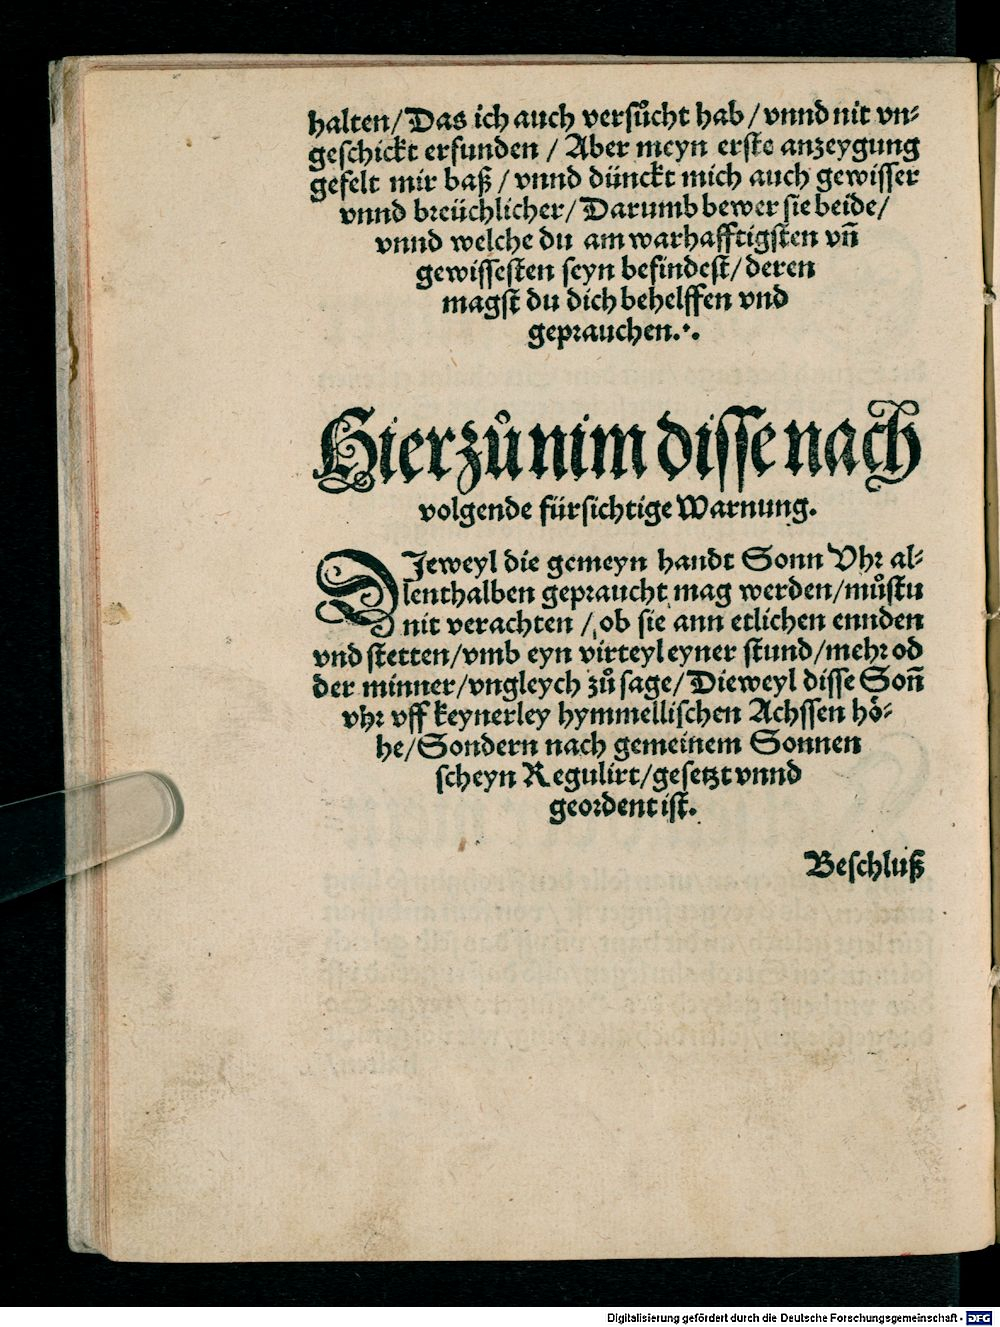 halten/ Das ich auch versůcht hab / vnnd nit vn⸗
geschickt erfunden / Aber meyn erste anzeygung
gefelt mir baß / vnnd dünckt mich auch gewisser
vnnd breüchlicher/ Darumb bewer sie beide/
vnnd welche du am warhafftigsten vñ
gewissesten seyn befindest/ deren
magst du dich behelffen vnd
geprauchen.·.
Hierzů nim disse nach
volgende fürsichtige Warnung.
DJeweyl die gemeyn handt Sonn Vhr al⸗
lenthalben gepraucht mag werden/ můstu
nit verachten / ob sie ann etlichen ennden
vnd stetten/ vmb eyn virteyl eyner stund/ mehr od
der minner/ vngleych zů sage/ Dieweyl disse Soñ
vhr vff keynerley hymmellischen Achssen hö⸗
he/ Sondern nach gemeinem Sonnen
scheyn Regulirt/ gesetzt vnnd
geordent ist.
Beschluß
Digitalisierung gefördert durch die Deutsche Forschungsgemeinschaft - DFG